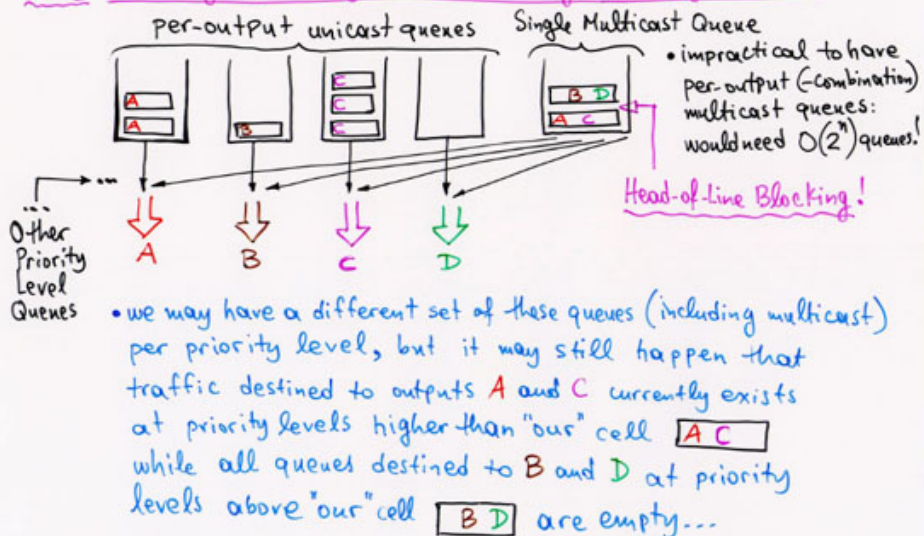 per-output unicast queues
Single Multicast Queue
• impractical to have
per-output (-combination)
multicast queues:
would need O(2^n) queues!
A
A
B
C
C
C
B D
A C
Head-of-Line Blocking!
...
...
Other
Priority
Level
Queues
A
B
C
D
• we may have a different set of these queues (including multicast)
per priority level, but it may still happen that
traffic destined to outputs A and C currently exists
at priority levels higher than "our" cell A C
while all queues destined to B and D at priority
levels above "our" cell B D are empty...